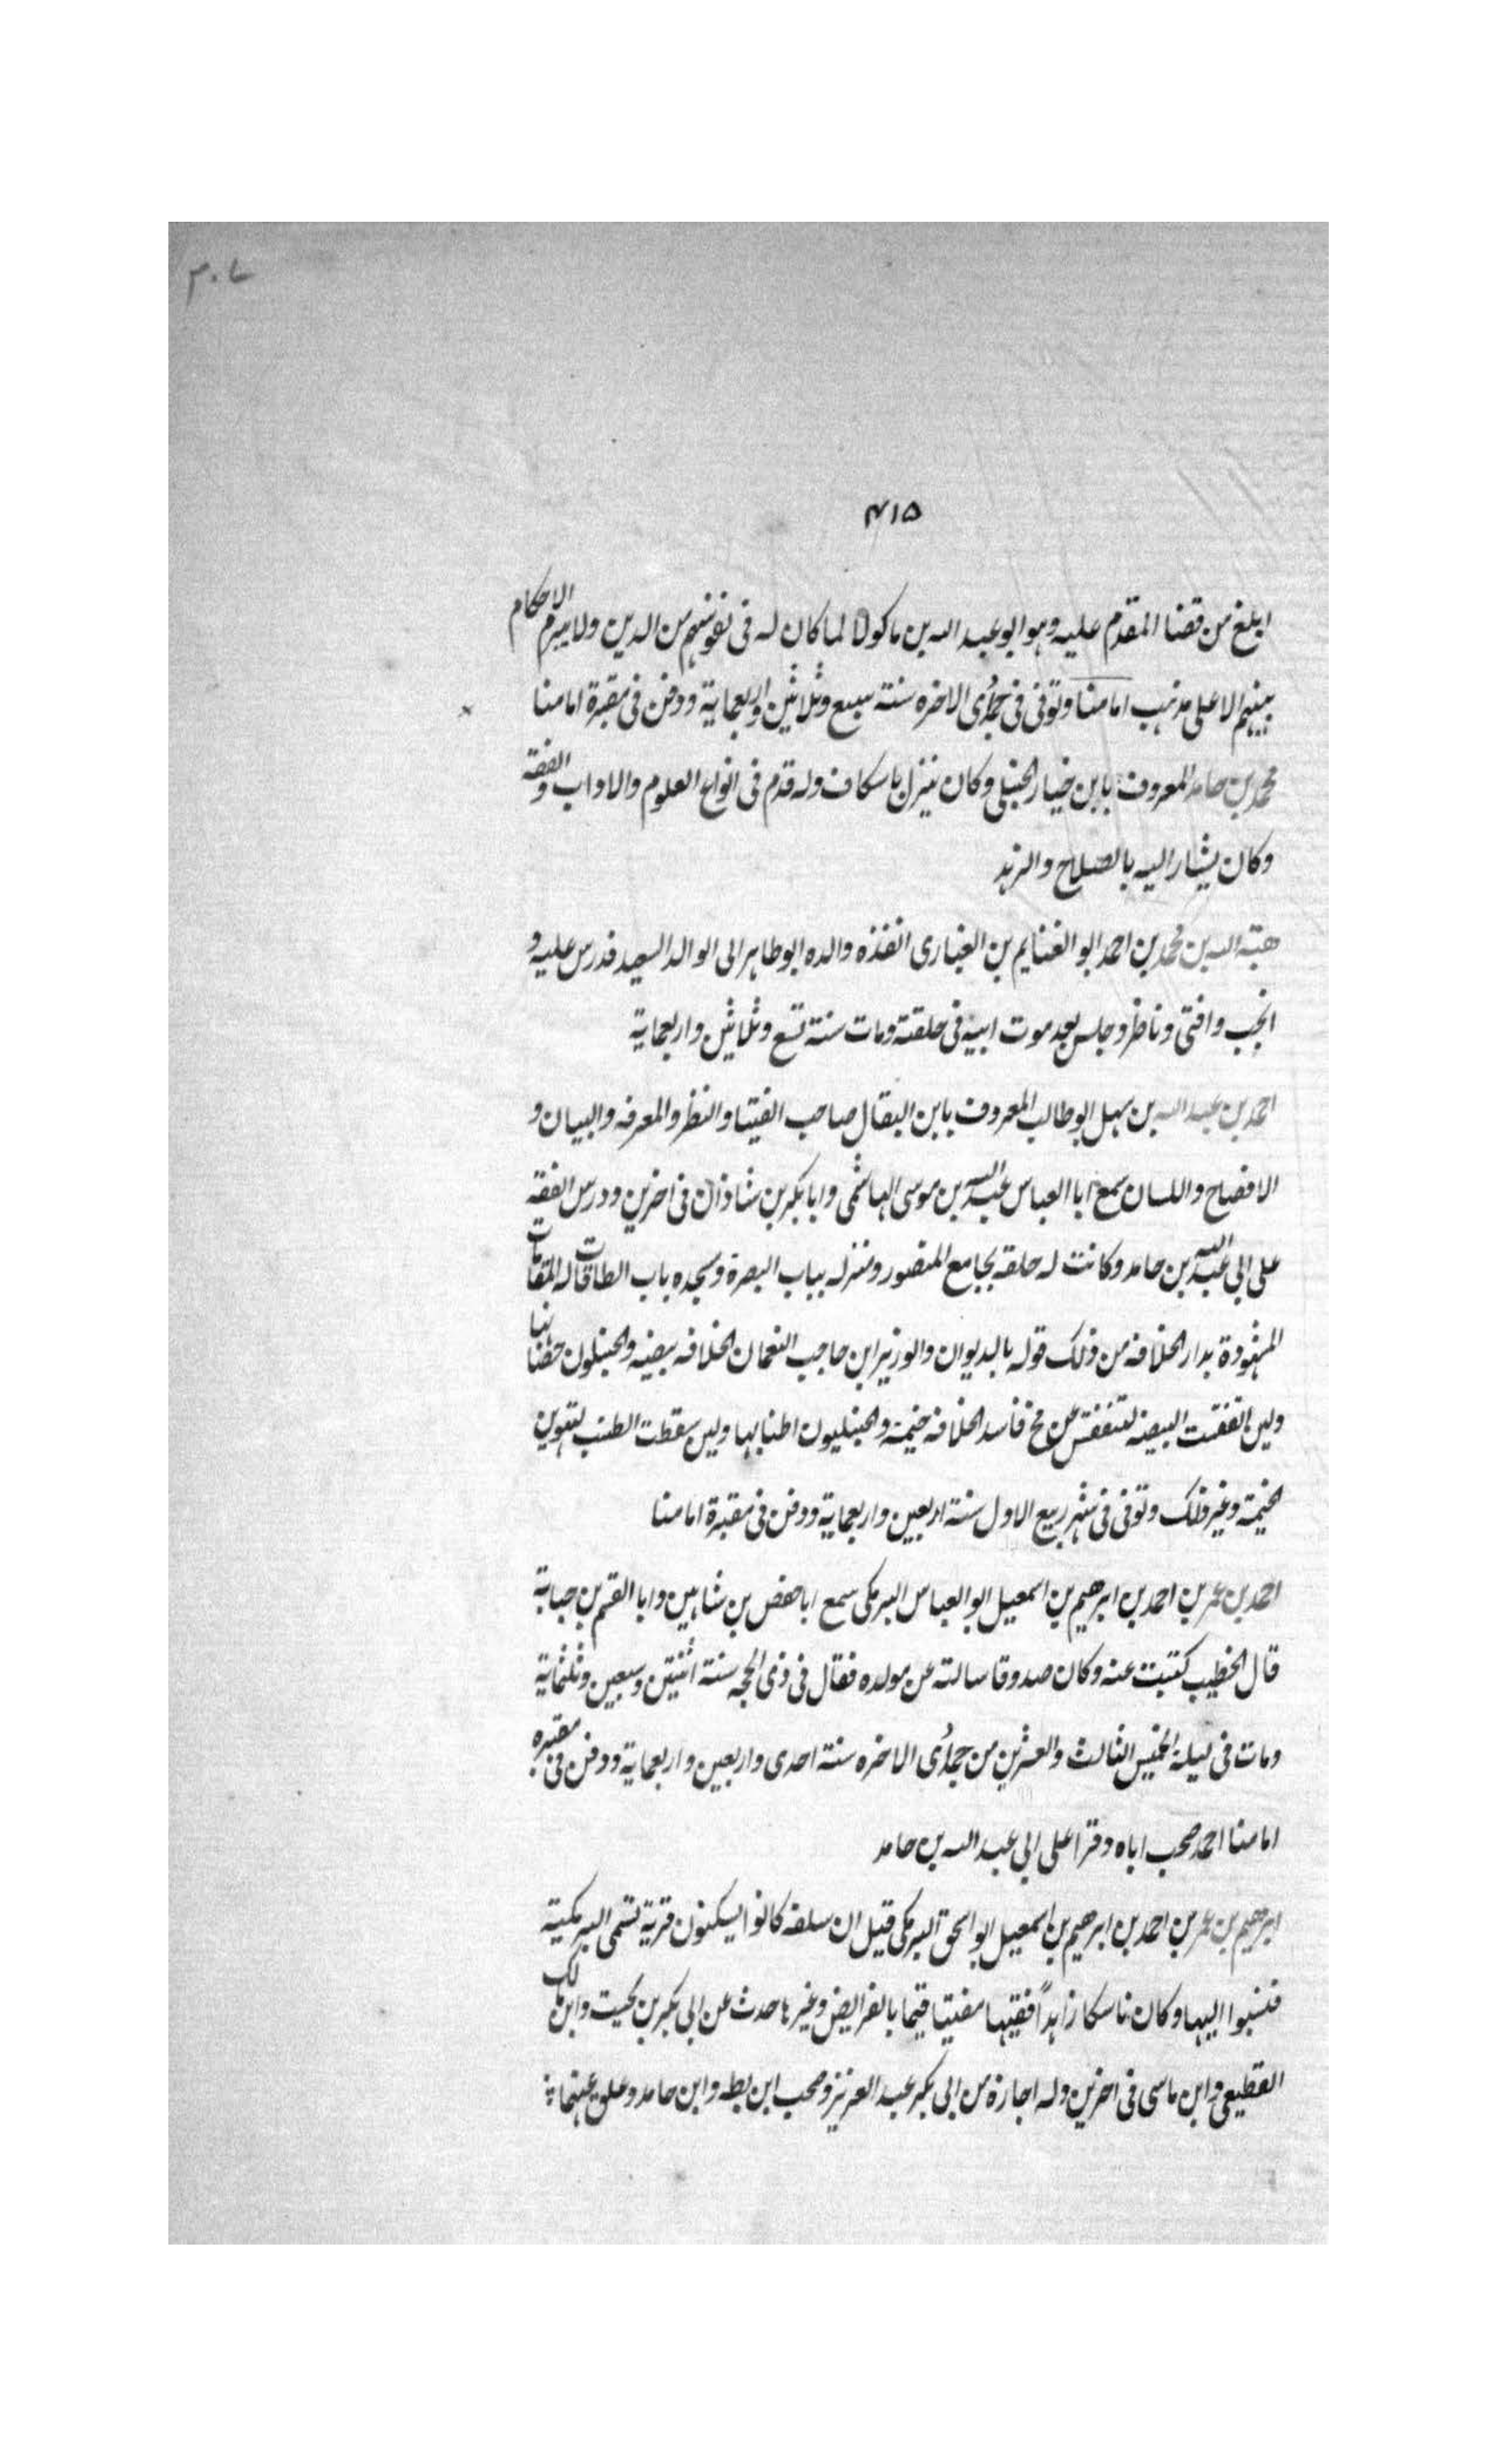 ٣٠٧
٤١٥
ابلغ من قضا المقدم عليه وهو ابو عبد الله بن ماكولا لما كان له فى نفوسهم من الدين ولا يبرم الاحكام
بينهم الا على مذهب امامنا وتوفى فى جمادى الاخره سنة سبع وثلاثين واربعماية ودفن فى مقبرة امامنا
محمد بن حامد المعروف بابن خيار الحنبلى وكان ينزل باسكاف وله قدم فى انواع العلوم والاداب والفقه
وكان يشار اليه بالصلاح والزهد
هبة الله بن محمد بن احمد ابو الغنايم بن الغبارى انفذه والده ابو طاهر الى الوالد السعيد فدرس عليه و
انجب وافتى وناظر وجلس بعد موت ابيه فى حلقته ومات سنة تسع وثلاثين واربعماية
احمد بن عبد الله بن سهل ابو طالب المعروف بابن البقال صاحب الفتيا والنظر والمعرفه والبيان و
الافصاح واللسان سمع ابا العباس عبد الله بن موسى الهاشمى وابا بكر بن شاذان فى اخرين ودرس الفقه
على ابى عبد الله بن حامد وكانت له حلقه بجامع المنصور ومنزله بباب البصرة ومسجده باب الطاقات له المقامات
المشهودة بدار الخلافه من ذلك قوله بالديوان والوزير ابن حاجب النعمان الخلافه بيضه والحنبلون حضانها
ولين انفقت البيضه لتنفقش عن مخ فاسد الخلافه خيمة والحنبليون اطنابها ولين سقطت الطنب لتهوين
الخيمة وغير ذلك وتوفى فى شهر ربيع الاول سنة اربعين واربعماية ودفن فى مقبرة امامنا
احمد بن عمر بن احمد بن ابرهيم بن اسمعيل ابو العباس البرمكى سمع ابا حفص بن شاهين وابا القسم بن حبابة
قال الخطيب كتبت عنه وكان صدوقا سالته عن مولده فقال فى ذى الحجه سنة اثنتين وسبعين وثلثماية
ومات فى ليلة الخميس الثالث والعشرين من جمادى الاخره سنة احدى واربعين واربعماية ودفن فى مقبره
امامنا احمد صحب اباه وقرا على ابى عبد الله بن حامد
ابرهيم بن عمر بن احمد بن ابرهيم بن اسمعيل ابو اسحق البرمكى قيل ان سلفه كانوا يسكنون قرية تسمى البرمكية
فنسبوا اليها وكان ناسكا زاهدا فقيها مفتيا قيما بالفرايض وغيرها حدث عن ابى بكر بن بخيت وابن مالك
القطيعى وابن ماسى فى اخرين وله اجازة من ابى بكر عبد العزيز وصحب ابن بطه وابن حامد وعلق عنهما